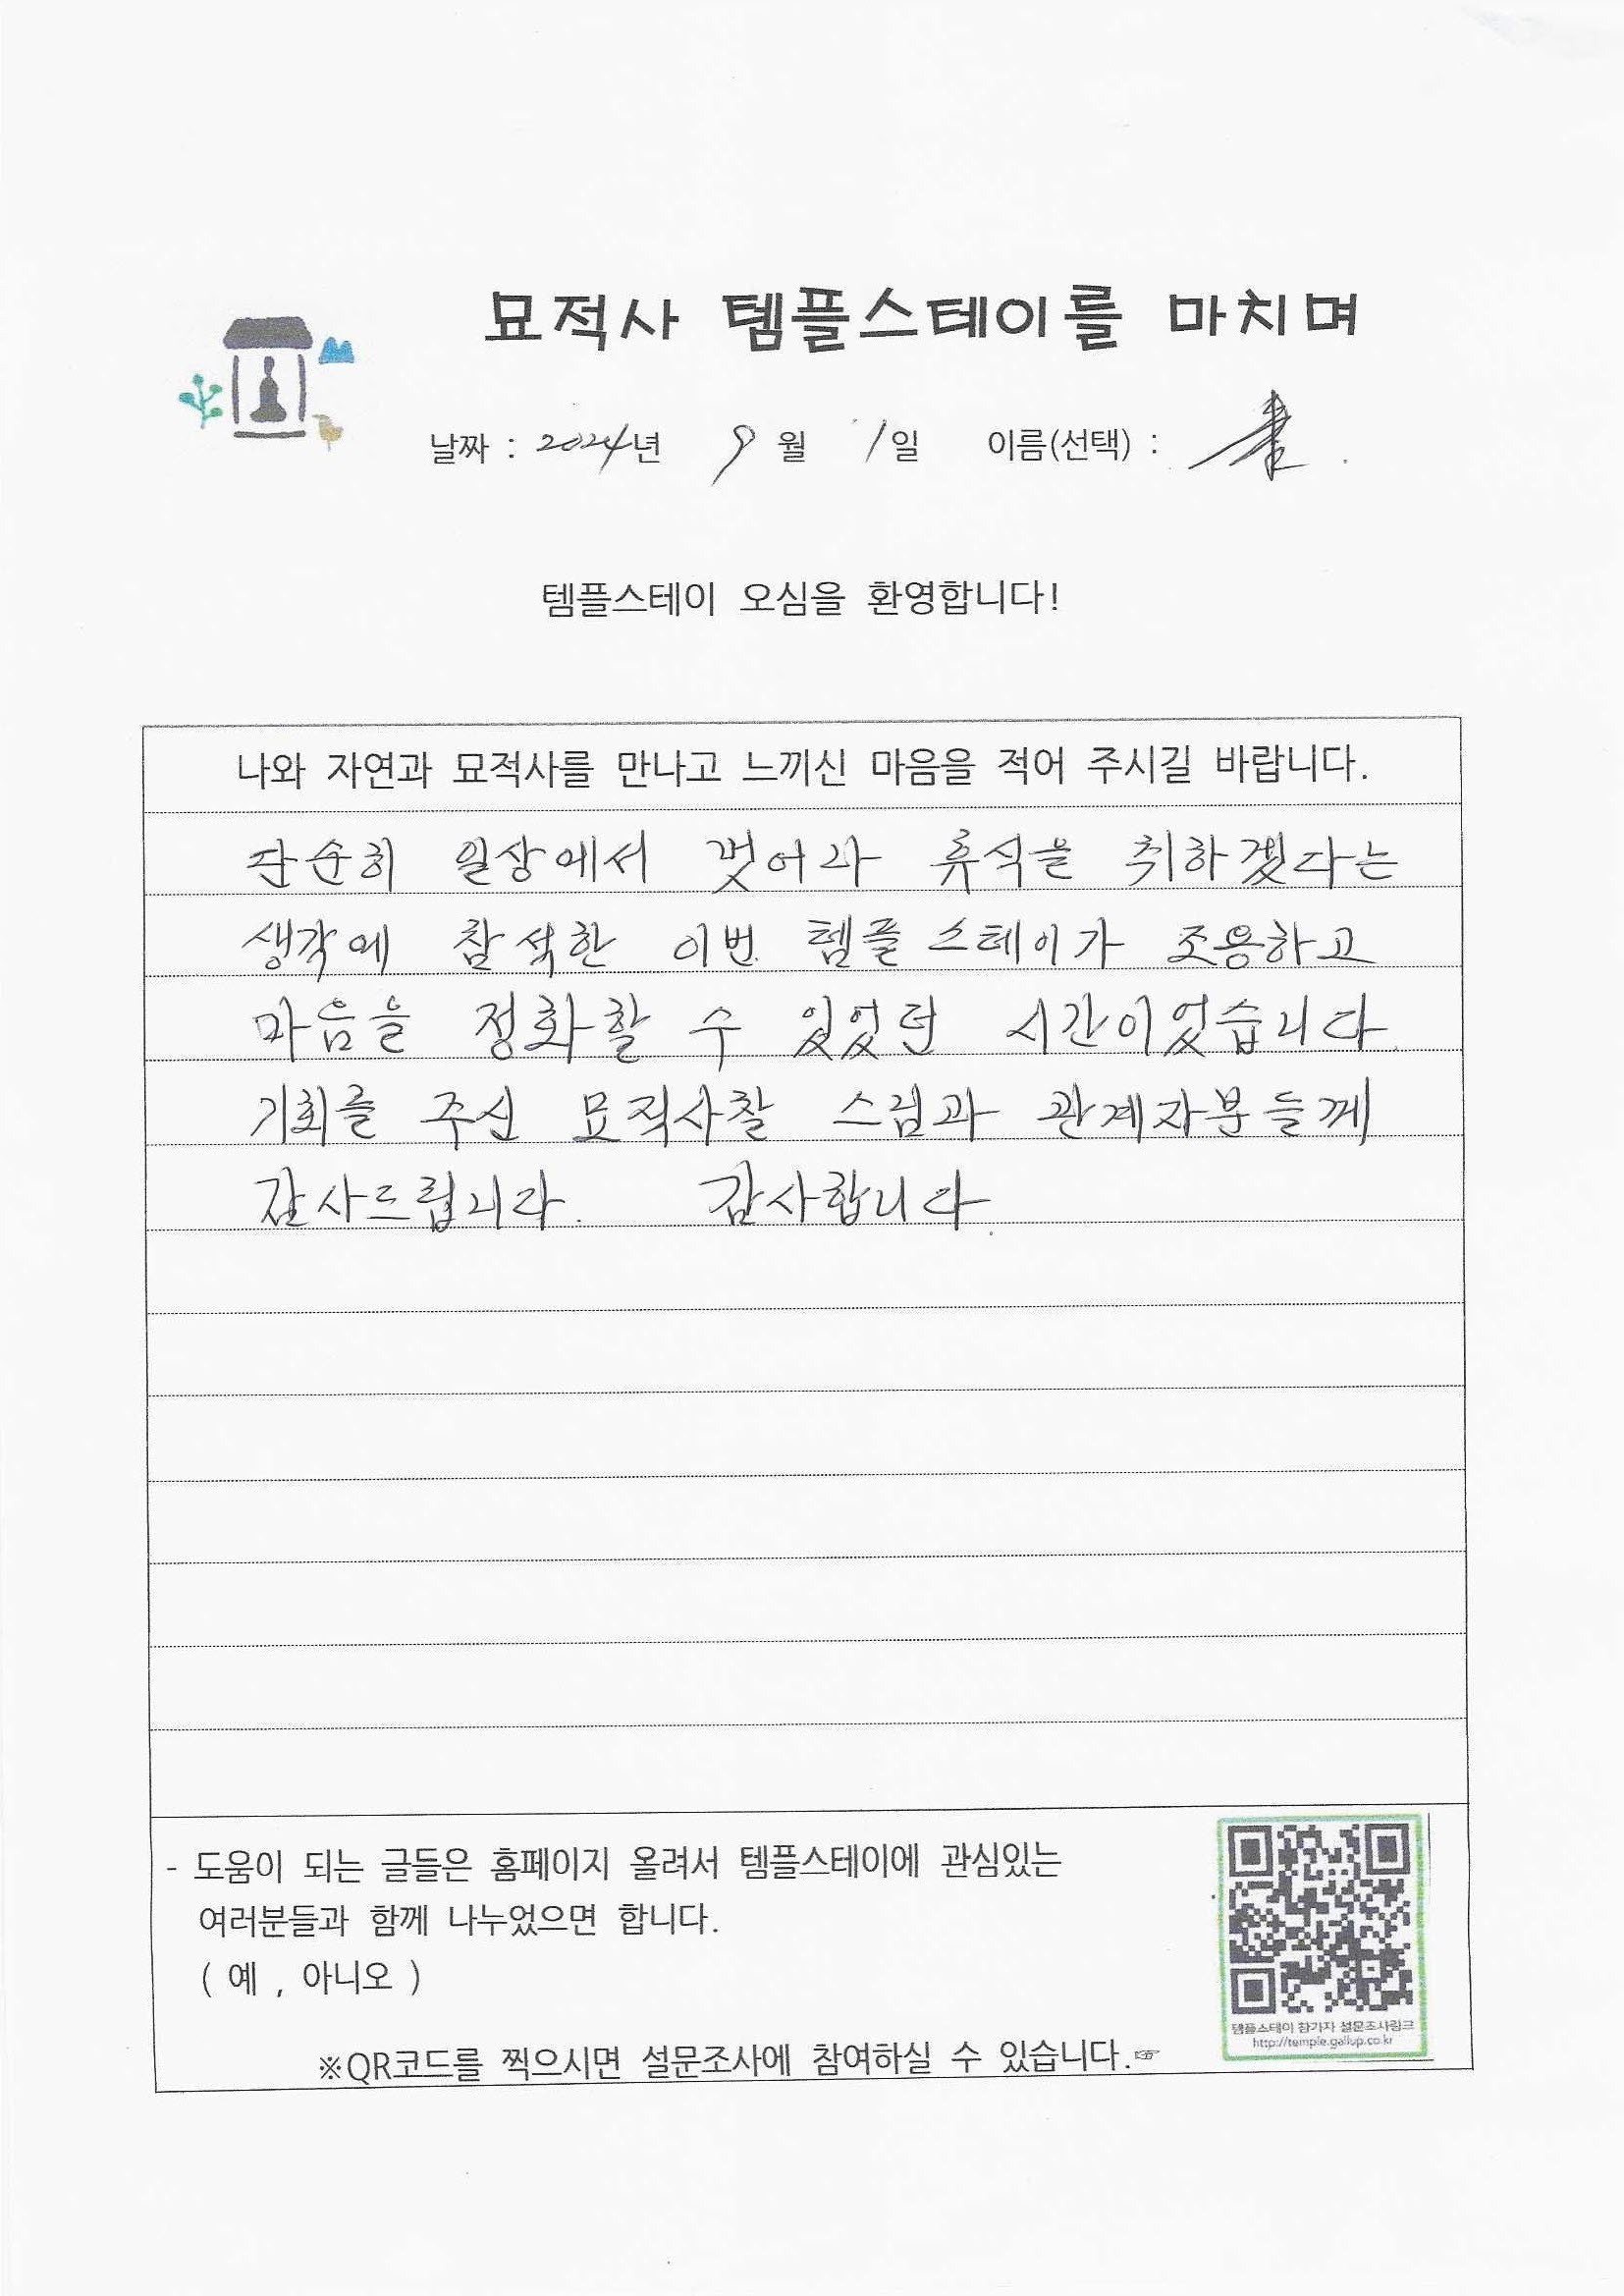 묘적사 템플스테이를 마치며
날짜 : 2024년 9월 1일 이름(선택) :
템플스테이 오심을 환영합니다!
나와 자연과 묘적사를 만나고 느끼신 마음을 적어 주시길 바랍니다.
단순히 일상에서 벗어나 휴식을 취하겠다는
생각에 참석한 이번 템플스테이가 조용하고
마음을 정화할 수 있었던 시간이었습니다.
기회를 주신 묘적사찰 스님과 관계자분들께
감사드립니다. 감사합니다.
- 도움이 되는 글들은 홈페이지 올려서 템플스테이에 관심있는
여러분들과 함께 나누었으면 합니다.
( 예 , 아니오 )
템플스테이 참가자 설문조사링크
http://temple.gallup.co.kr
※QR코드를 찍으시면 설문조사에 참여하실 수 있습니다.☞